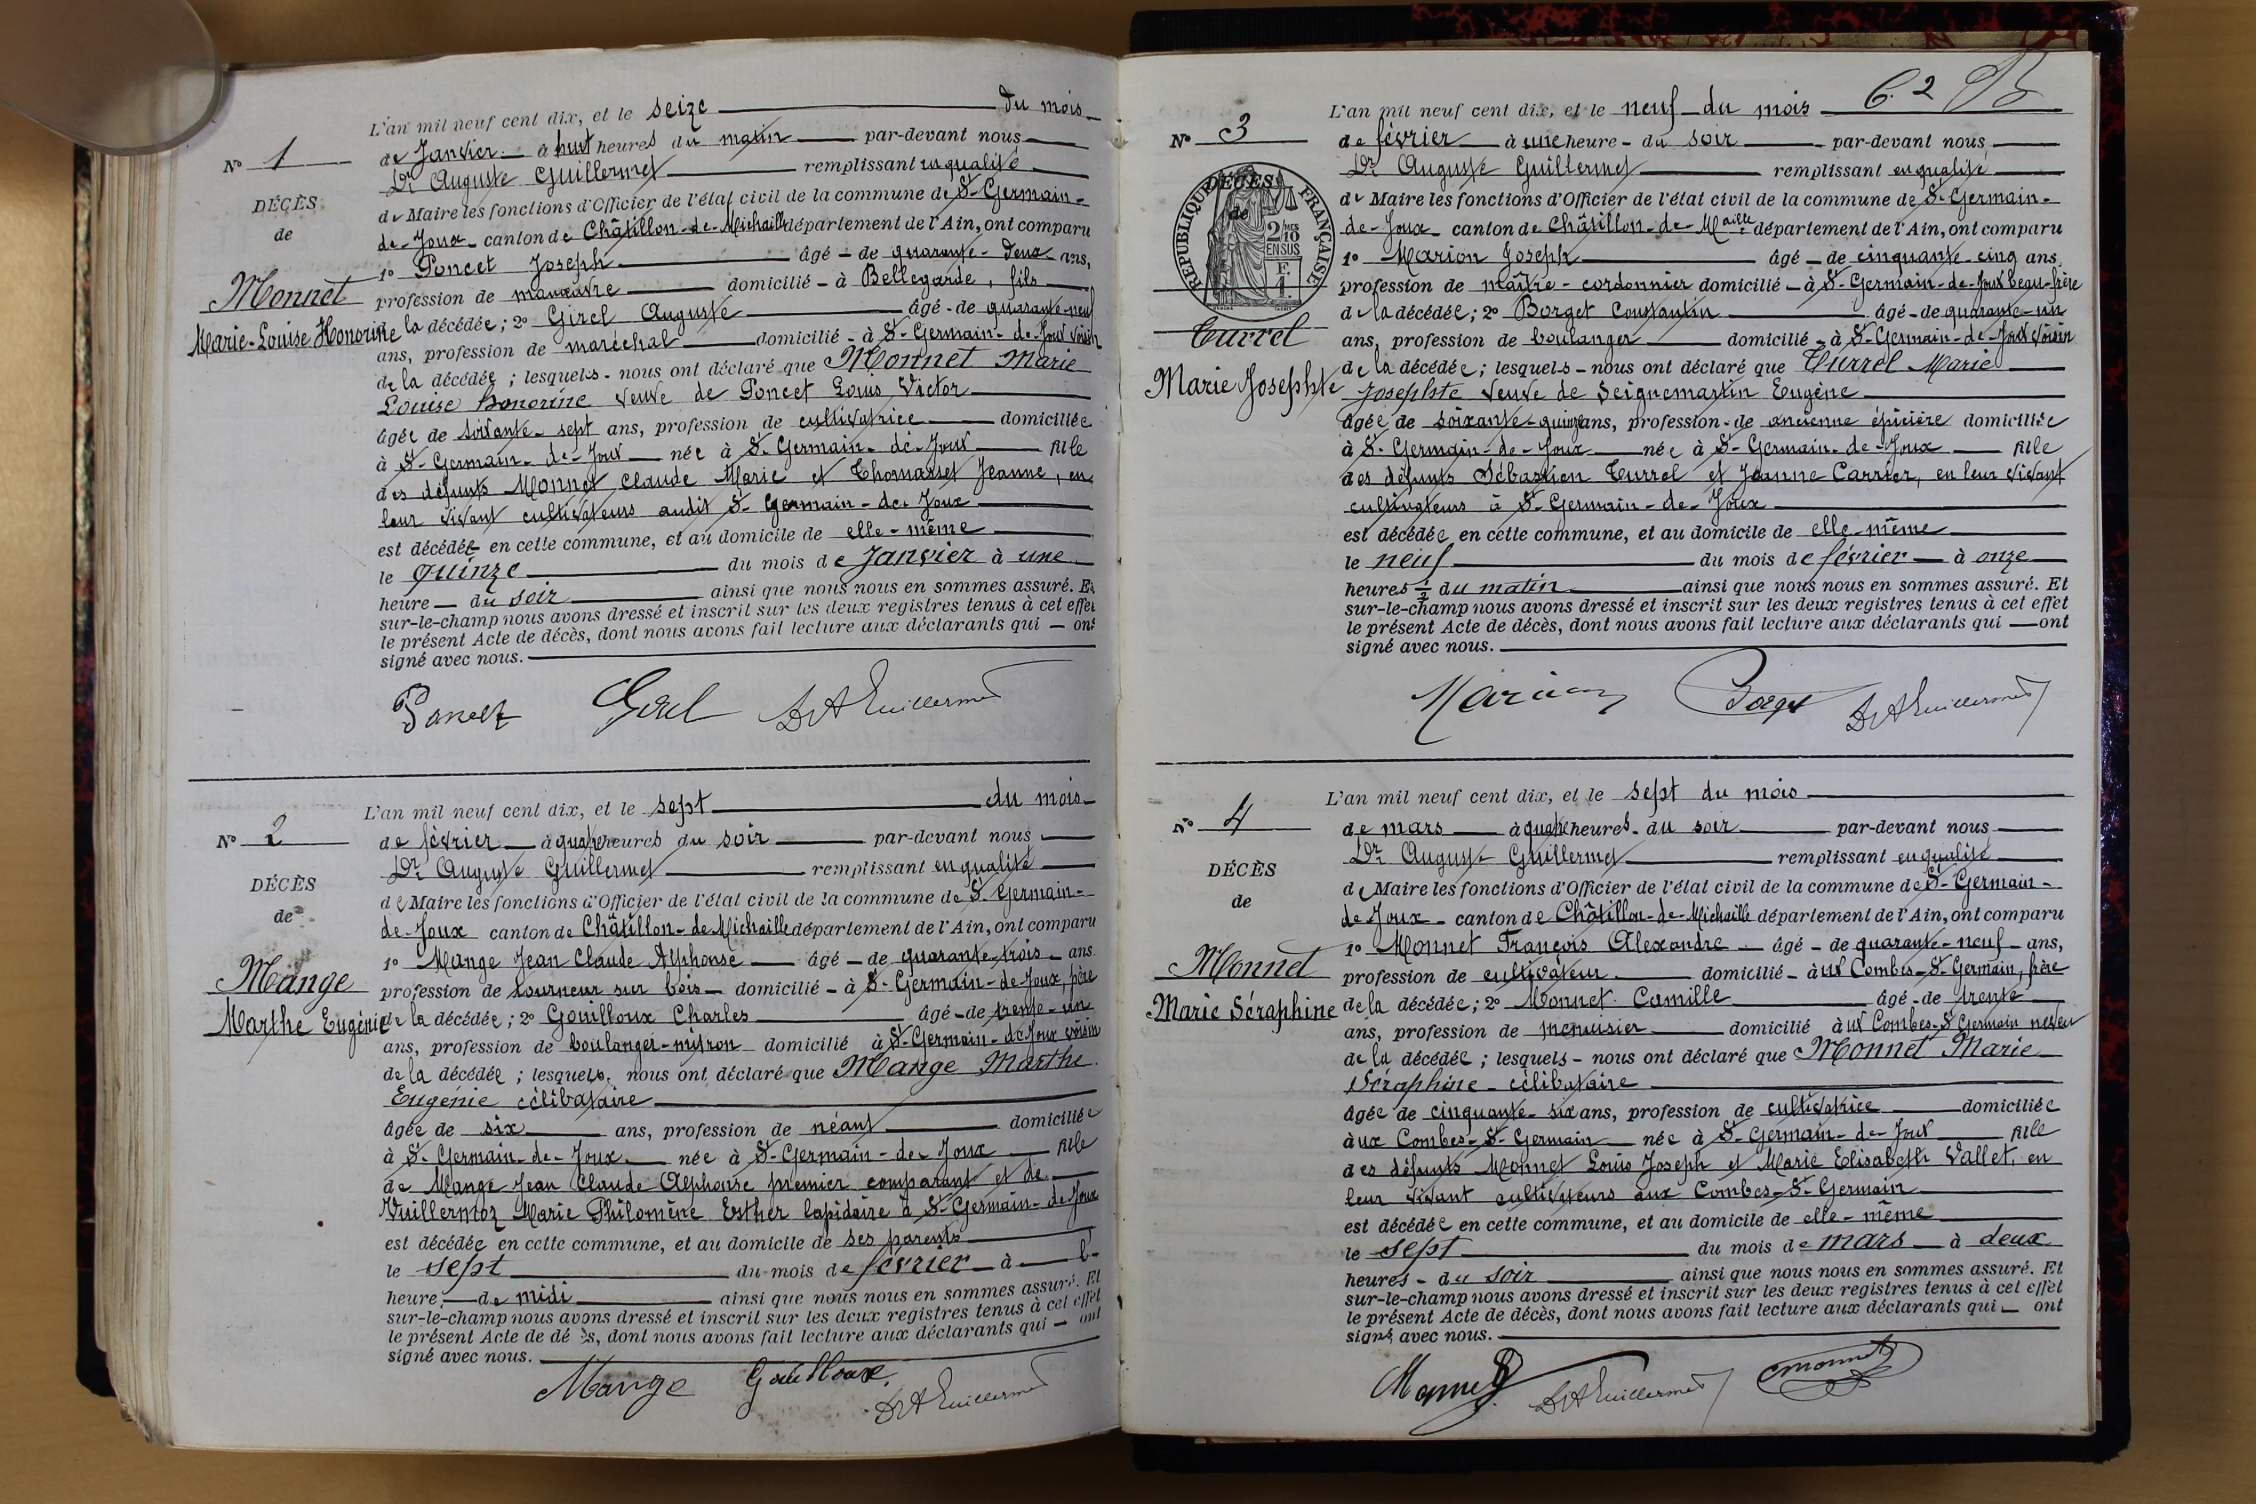 L'an mil neuf cent dix, et le seize du mois
de Janvier à huit heures du matin par-devant nous
Dr Auguste Guillermet remplissant en qualité
de Maire les fonctions d'Officier de l'état civil de la commune de St-Germain-
de-Joux canton de Châtillon-de-Michaille département de l'Ain, ont comparu
1º Poncet Joseph âgé de quarante-deux ans,
profession de manœuvre domicilié à Bellegarde, fils
de la décédée; 2º Girel Auguste âgé de quarante-neuf
ans, profession de maréchal domicilié à St-Germain-de-Joux voisin
de la décédée; lesquels nous ont déclaré que Monnet Marie
Louise Honorine veuve de Poncet Louis Victor
âgée de soixante-sept ans, profession de cultivatrice domiciliée
à St-Germain-de-Joux née à St-Germain-de-Joux fille
des défunts Monnet Claude Marie et Thomasset Jeanne, en
leur vivant cultivateurs audit St-Germain-de-Joux
est décédée en cette commune, et au domicile de elle-même
le quinze du mois de Janvier à une
heure du soir ainsi que nous nous en sommes assuré. Et
sur-le-champ nous avons dressé et inscrit sur les deux registres tenus à cet effet
le présent Acte de décès, dont nous avons fait lecture aux déclarants qui ont
signé avec nous.
Nº 1
DÉCÈS
de
Monnet
Marie-Louise Honorine
Poncet Girel Dr A Guillermet
L'an mil neuf cent dix, et le sept du mois
de février à quatre heures du soir par-devant nous
Dr Auguste Guillermet remplissant en qualité
de Maire les fonctions d'Officier de l'état civil de la commune de St-Germain-
de-Joux canton de Châtillon-de-Michaille département de l'Ain, ont comparu
1º Mange Jean Claude Alphonse âgé de quarante-trois ans
profession de tourneur sur bois domicilié à St-Germain-de-Joux, père
de la décédée; 2º Gouilloux Charles âgé de trente-un
ans, profession de boulanger-mitron domicilié à St-Germain-de-Joux voisin
de la décédée; lesquels nous ont déclaré que Mange Marthe
Eugénie célibataire
âgée de six ans, profession de néant domiciliée
à St-Germain-de-Joux née à St-Germain-de-Joux fille
de Mange Jean Claude Alphonse premier comparant et de
Vuillermoz Marie Philomène Esther lapidaire à St-Germain-de-Joux
est décédée en cette commune, et au domicile de ses parents
le sept du mois de février à l'
heure de midi ainsi que nous nous en sommes assuré. Et
sur-le-champ nous avons dressé et inscrit sur les deux registres tenus à cet effet
le présent Acte de décès, dont nous avons fait lecture aux déclarants qui ont
signé avec nous.
Nº 2
DÉCÈS
de
Mange
Marthe Eugénie
Mange Gouilloux Dr A Guillermet
62
L'an mil neuf cent dix, et le neuf du mois
de février à une heure du soir par-devant nous
Dr Auguste Guillermet remplissant en qualité
de Maire les fonctions d'Officier de l'état civil de la commune de St-Germain-
de-Joux canton de Châtillon-de-Maille département de l'Ain, ont comparu
1º Marion Joseph âgé de cinquante-cinq ans
profession de maître-cordonnier domicilié à St-Germain-de-Joux beau-frère
de la décédée; 2º Borget Constantin âgé de quarante-un
ans, profession de boulanger domicilié à St-Germain-de-Joux voisin
de la décédée; lesquels nous ont déclaré que Turrel Marie
Josephte veuve de Seignemartin Eugène
âgée de soixante-quinze ans, profession de ancienne épicière domiciliée
à St-Germain-de-Joux née à St-Germain-de-Joux fille
des défunts Sébastien Turrel et Jeanne Carrier, en leur vivant
cultivateurs à St-Germain-de-Joux
est décédée en cette commune, et au domicile de elle-même
le neuf du mois de février à onze
heures 1/2 du matin ainsi que nous nous en sommes assuré. Et
sur-le-champ nous avons dressé et inscrit sur les deux registres tenus à cet effet
le présent Acte de décès, dont nous avons fait lecture aux déclarants qui ont
signé avec nous.
Nº 3
DÉCÈS
de
RÉPUBLIQUE FRANÇAISE
2/10
EN SUS
Turrel
Marie Josephte
Marion Borget Dr A Guillermet
L'an mil neuf cent dix, et le sept du mois
de mars à quatre heures du soir par-devant nous
Dr Auguste Guillermet remplissant en qualité
de Maire les fonctions d'Officier de l'état civil de la commune de St-Germain-
de-Joux canton de Châtillon-de-Michaille département de l'Ain, ont comparu
1º Monnet François Alexandre âgé de quarante-neuf ans,
profession de cultivateur domicilié aux Combes-St-Germain, frère
de la décédée; 2º Monnet Camille âgé de trente
ans, profession de menuisier domicilié aux Combes-St Germain neveu
de la décédée; lesquels nous ont déclaré que Monnet Marie
Séraphine célibataire
âgée de cinquante-six ans, profession de cultivatrice domiciliée
aux Combes-St-Germain née à St-Germain-de-Joux fille
des défunts Monnet Louis Joseph et Marie Elisabeth Vallet, en
leur vivant cultivateurs aux Combes-St-Germain
est décédée en cette commune, et au domicile de elle-même
le sept du mois de mars à deux
heures du soir ainsi que nous nous en sommes assuré. Et
sur-le-champ nous avons dressé et inscrit sur les deux registres tenus à cet effet
le présent Acte de décès, dont nous avons fait lecture aux déclarants qui ont
signé avec nous.
Nº 4
DÉCÈS
de
Monnet
Marie Séraphine
Monnet Dr A Guillermet Monnet